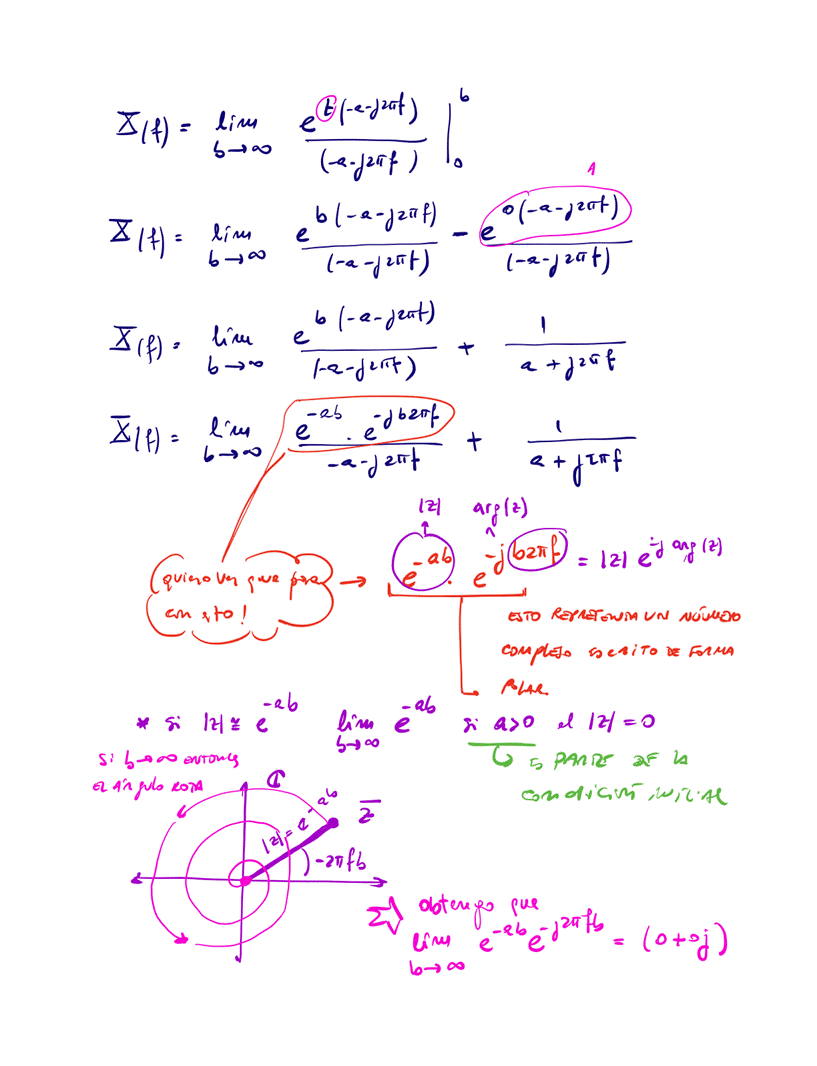 X(f) = lim b→∞ e^{t(-a-j2πf)} / (-a-j2πf) |_0^b
1
X(f) = lim b→∞ e^{b(-a-j2πf)} / (-a-j2πf) - e^{0(-a-j2πf)} / (-a-j2πf)
X(f) = lim b→∞ e^{b(-a-j2πf)} / (-a-j2πf) + 1 / (a+j2πf)
X(f) = lim b→∞ e^{-ab} · e^{-jb2πf} / (-a-j2πf) + 1 / (a+j2πf)
|z| arg(z)
quiero ver que pasa
con esto!
→ e^{-ab} · e^{-jb2πf} = |z| e^{-j arg(z)}
ESTO REPRESENTA UN NÚMERO
COMPLEJO ESCRITO DE FORMA
POLAR
* si |z| ≅ e^{-ab} lim b→∞ e^{-ab} si a>0 el |z|=0
Si b→∞ ENTONCES
EL ÁNGULO ROTA
ES PARTE DE LA
CONDICIÓN INICIAL
ℂ
z
|z| = e^{-ab}
-2πfb
⇒ obtengo que
lim b→∞ e^{-ab} e^{-j2πfb} = (0+0j)